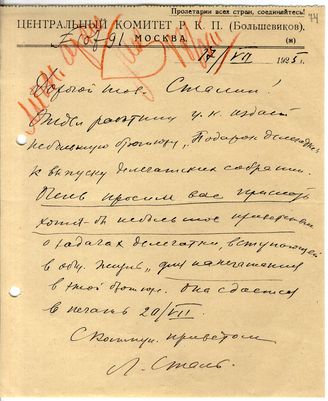 Пролетарии всех стран, соединяйтесь!
74
ЦЕНТРАЛЬНЫЙ КОМИТЕТ Р. К. П. (Большевиков).
МОСКВА.
17/VII 1925 г.
Дорогой тов. Сталин!
Ж издает
небольшую брошюру „Подарок делегатке"
к выпуску делегатских собраний.
Очень просим вас прислать
хотя-бы небольшое приветствие
о задачах делегатки, вступающей
в общ. жизнь, для напечатания
в этой брошюре. Она сдается
в печать 20/VII.
С коммун. приветом
Л. Сталь.